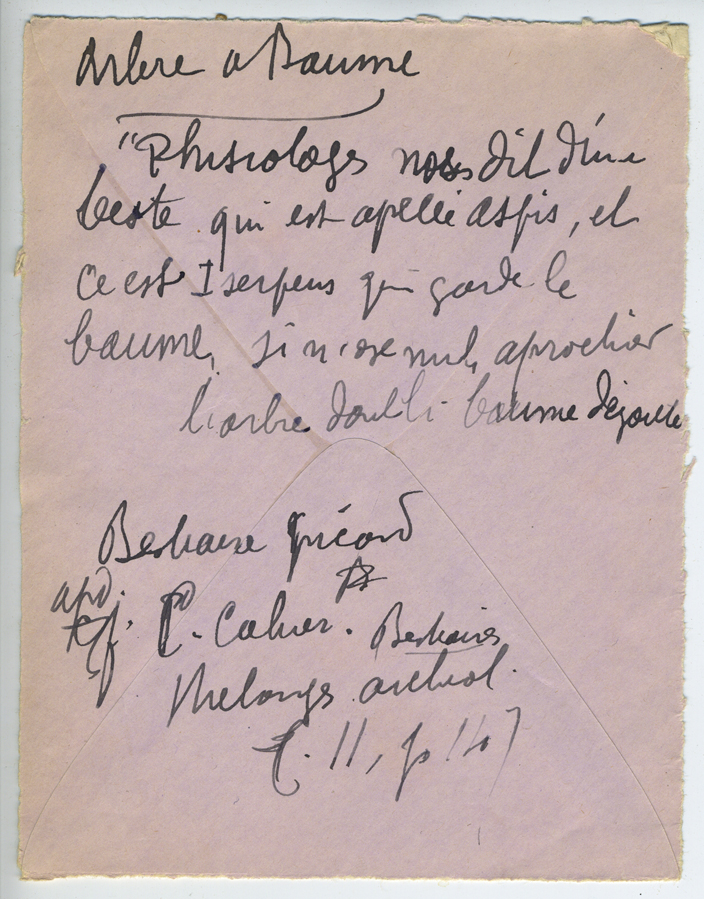 Arbre a Baume
"Phisiologes nous dit d'une
beste qui est apellée aspis, et
ce est I serpens qui garde le
baume, si n'ose nuls aprochier
l'arbre dont li baume dégoute
Bestiaire picard
apd. P. Cahier. Bestiaires
Melanges archéol.
t. II, p 147